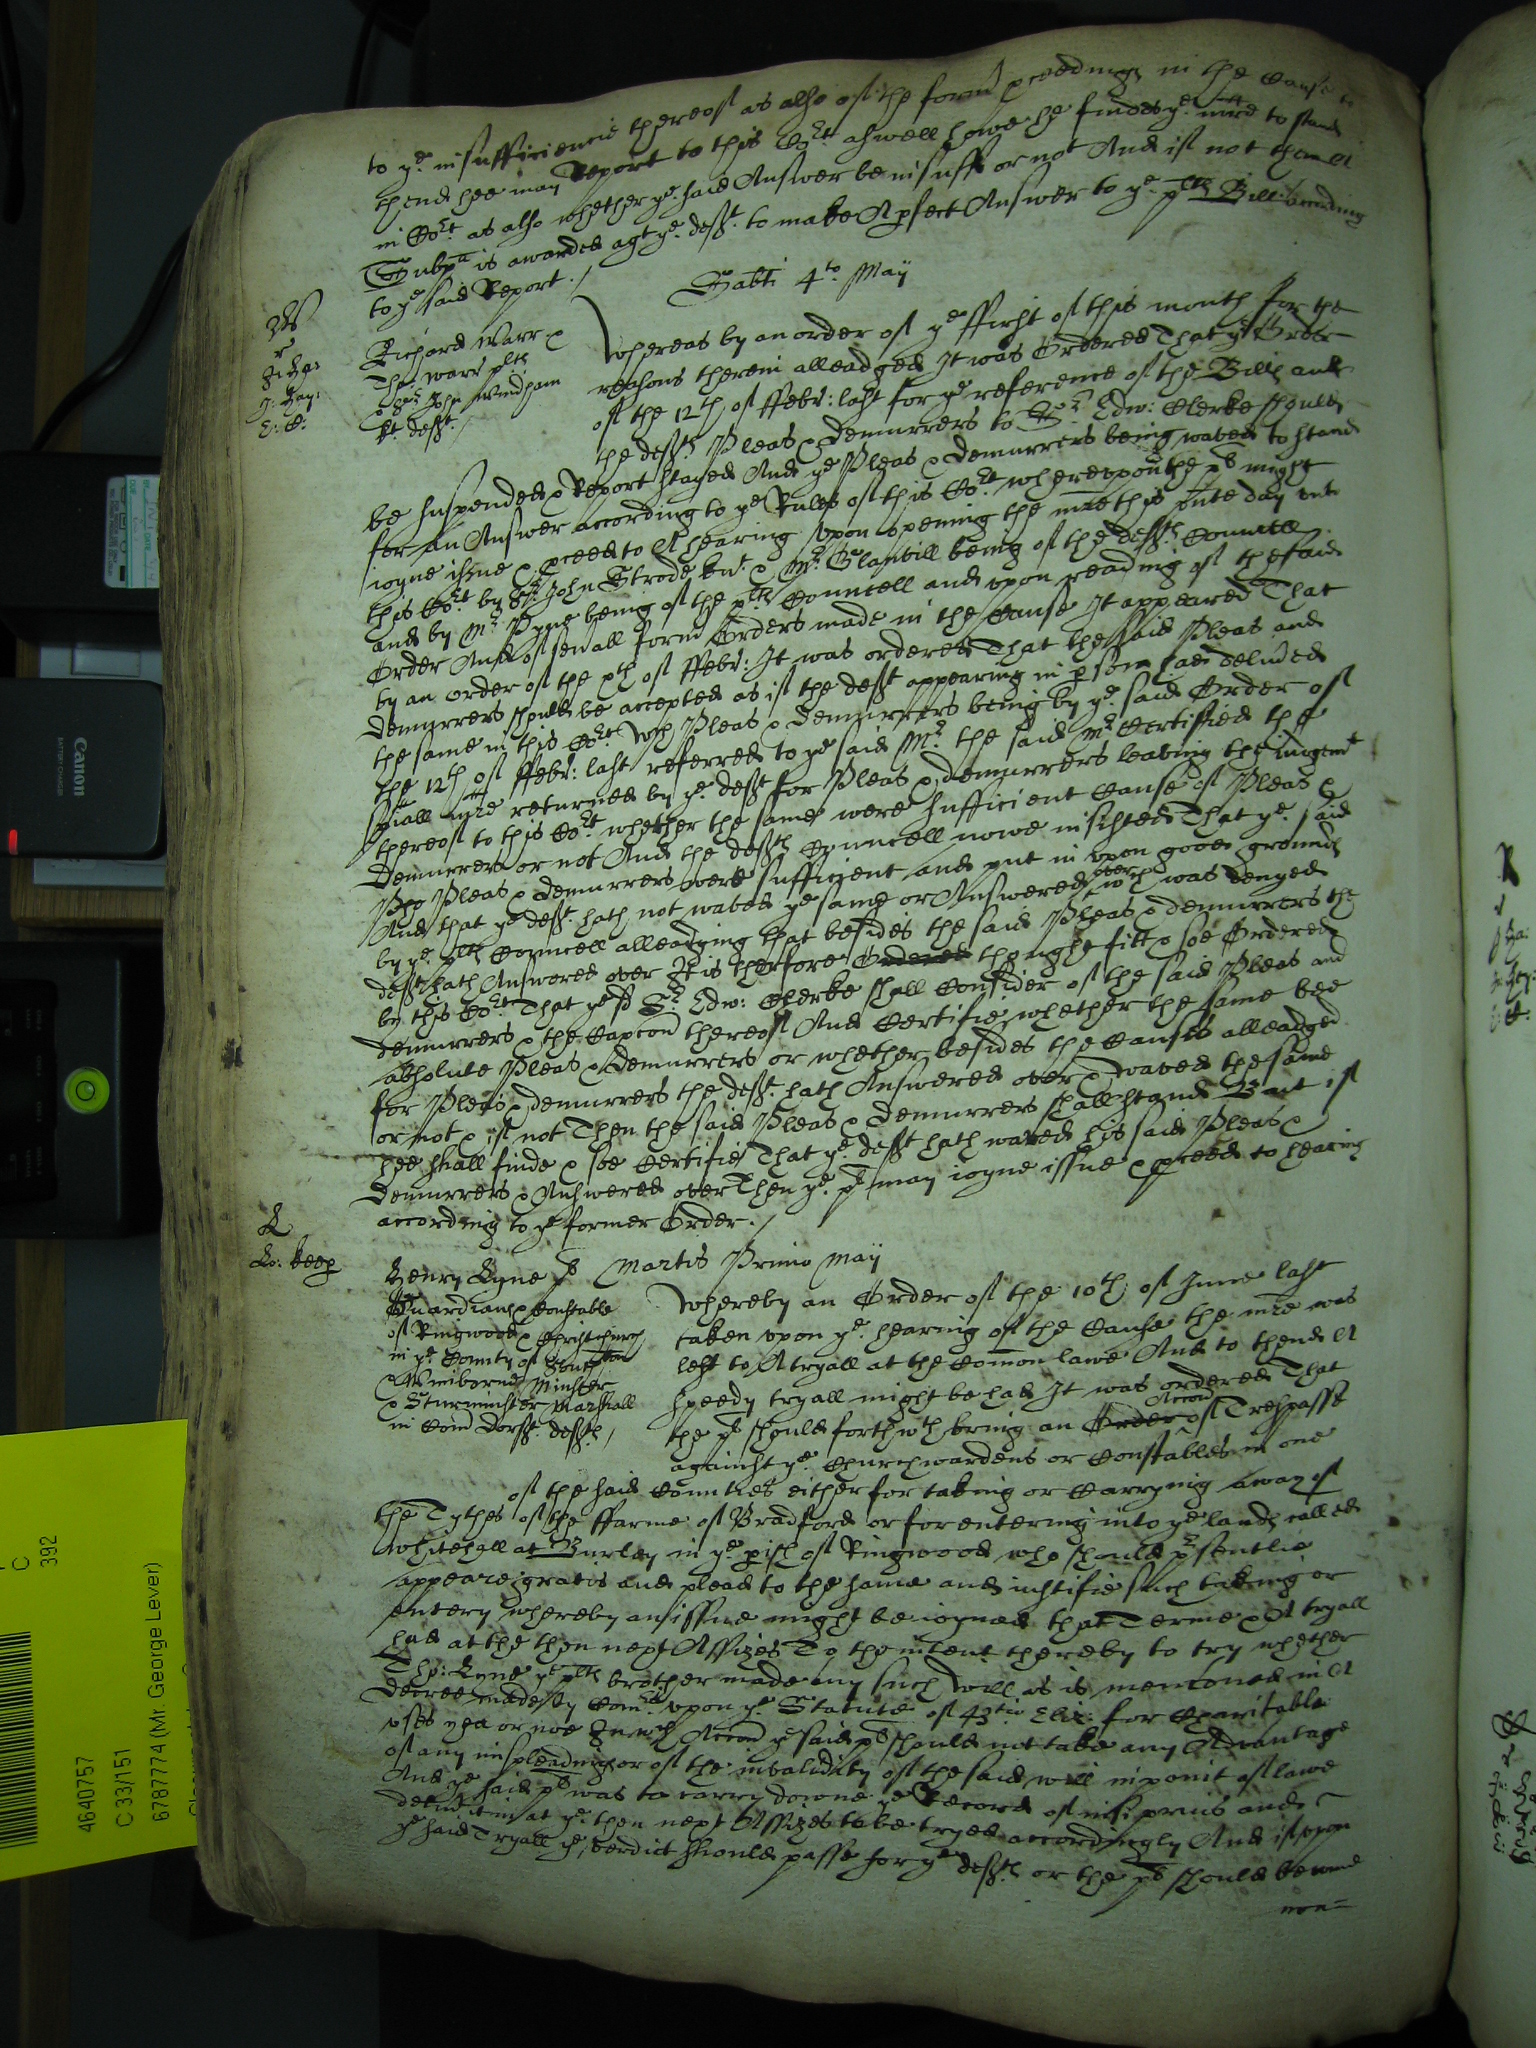 to ye insufficiencie thereof as also of the form[er] pceedings in the Cause to
thend hee may Report to this Cort aswell howe he findes ye mre to stand
in Cort as also whether ye said Answer be insuff or not And if not then A
Subpa is awarded agt ye deft to make A pfect Answer to ye plts Bill according
to ye said Report ./
Sabti 4to Maij
Richard Warr &
Tho: Warr plts
Sr John Windham
kt deft /
Whereas by an order of ye ffirst of this month for the
reasons therein alleadged It was Ordered That ye Order
of the 12th of ffebr: last for ye reference of the Bill and
the defts Pleas & demurrers to Sr Edw: Clerke should
be suspended & Report stayed And ye Pleas & demurrers being waved to stand
for an Answer according to ye Rules of this Cort whereupon the pl might
ioyne issue & pceed to A hearing Upon opening the mre this pnte day unto
this Cort by Sr John Strode knt & Mr Glanvill being of the defts Councell
and by Mr Pyne being of the plts Councell and upon reading of the said
Order And of sevall form Orders made in the Cause It appeared That
by an order of the xth of ffebr: It was ordered That the said Pleas and
Demurrers should be accepted as if the deft appearing in pson had delived
the same in this Cort Wch Pleas & Demurrers being by ye said Order of
the 12th of ffebr: last referred to ye said Mr the said Mr Certified the
spiall mre returned by ye deft for Pleas & demurrers leaving the Iudgemt
thereof to this Cort whether the same were sufficient Cause of Pleas &
Demurrers or not And the defts Councell nowe insisted That ye said
Pleas & demurrers were sufficient and put in upon good grounds
And that ye deft hath not waved ye same or Answered over wch was denyed
by ye plts Councell alleadging that besides the said Pleas & demurrers the
deft hath Answered over It is therfore Ordered thought fitt & soe Ordered
by this Cort That ye sd Sr Edw: Clerke shall Consider of the said Pleas and
demurrers & the Capcon thereof And Certifie whether the same bee
absolute Pleas & Demurrers or whether besides the Causes alleadged
for Pleas & demurrers the deft hath Answered over & waved the same
or not & if not Then the said Pleas & Demurrers shall stand But if
hee shall finde & soe Certifie That ye deft hath waved his said Pleas &
Demurrers & Answered over Then ye pl may ioyne issue & pceed to hearing
according to ye former Order ./
Lo: keep
Martis Primo Maij
Henry Lyne pl
Guardians & Constable
of Ringwood & Christchurch
in ye County of Southton
& Wimborne Minster
& Sturminster Marshall
in Com Dorst defts /
Whereby an Order of the 10th of June last
taken upon ye hearing of the Cause the mre was
left to A tryall at the Comon lawe And to thend A
speedy tryall might be had It was ordered That
the pl should forthwth bring an Order Accon of Trespasse
against ye Churchwardens or Constables in one
of the said Counties either for taking or Carrying away of
the Tythes of the ffarme of Bradford or for entering into ye lands called
Whitehall at Burley in ye pish of Ringwood who should psentlie
appeare gratis and plead to the same and iustifie such taking or
entery whereby an issue might be ioyned that Terme & A tryall
had at the then next Assizes To the intent thereby to try whether
Tho: Lyne ye plts brother made any such Will as is menconed in A
Decree made by Comrs upon ye Statute of 43tio Eliz: for Charitable
uses yea or noe In wch Accon ye said pl should not take any Advantage
of any mispleading or of the invalidity of the said will in point of lawe
And ye said pl was to carry downe ye Record of nisi prius and
ye then next Assizes to be tryed accordingly And if upon
ye said Tryall ye verdict should passe for ye defts or the pl should become
non=
Canon
BATTERY CHARGER
C
392
4640757
C 33/151
6787774 (Mr. George Lever)